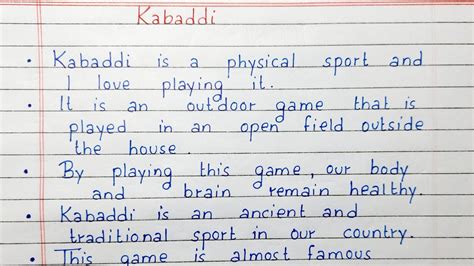 Kabaddi
• Kabaddi is a physical sport and
I love playing it.
• It is an outdoor game that is
played in an open field outside
the house.
• By playing this game, our body
and brain remain healthy.
• Kabaddi is an ancient and
traditional sport in our country.
• This game is almost famous